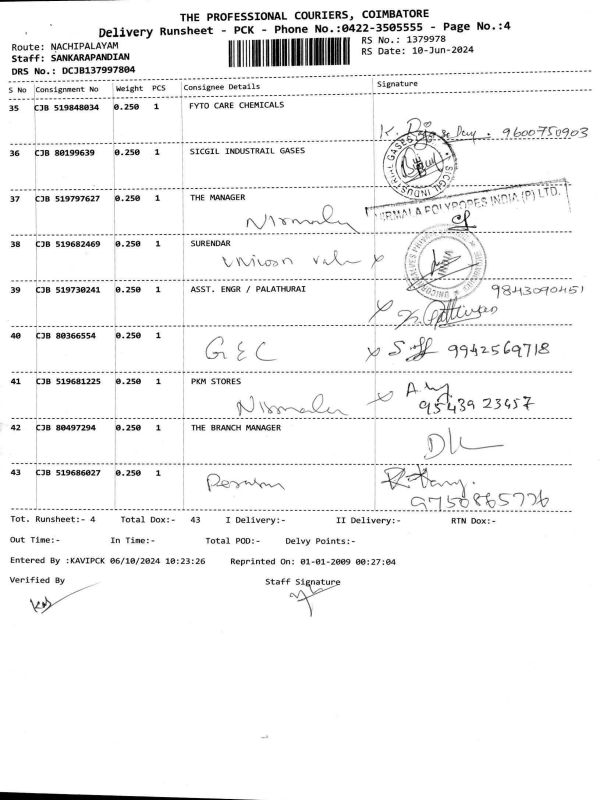 THE PROFESSIONAL COURIERS, COIMBATORE
Delivery Runsheet - PCK - Phone No.:0422-3505555 - Page No.:4
Route: NACHIPALAYAM
RS No.: 1379978
Staff: SANKARAPANDIAN
RS Date: 10-Jun-2024
DRS No.: DCJB137997804
S No Consignment No Weight PCS Consignee Details Signature
35 CJB 519848034 0.250 1 FYTO CARE CHEMICALS
9600750903
36 CJB 80199639 0.250 1 SICGIL INDUSTRAIL GASES
37 CJB 519797627 0.250 1 THE MANAGER
NIRMALA POLYROPES INDIA (P) LTD.
38 CJB 519682469 0.250 1 SURENDAR
39 CJB 519730241 0.250 1 ASST. ENGR / PALATHURAI
9843090451
40 CJB 80366554 0.250 1
GEC
9942569718
41 CJB 519681225 0.250 1 PKM STORES
9543923457
42 CJB 80497294 0.250 1 THE BRANCH MANAGER
43 CJB 519686027 0.250 1
9750865776
Tot. Runsheet:- 4 Total Dox:- 43 I Delivery:- II Delivery:- RTN Dox:-
Out Time:- In Time:- Total POD:- Delvy Points:-
Entered By :KAVIPCK 06/10/2024 10:23:26 Reprinted On: 01-01-2009 00:27:04
Verified By Staff Signature